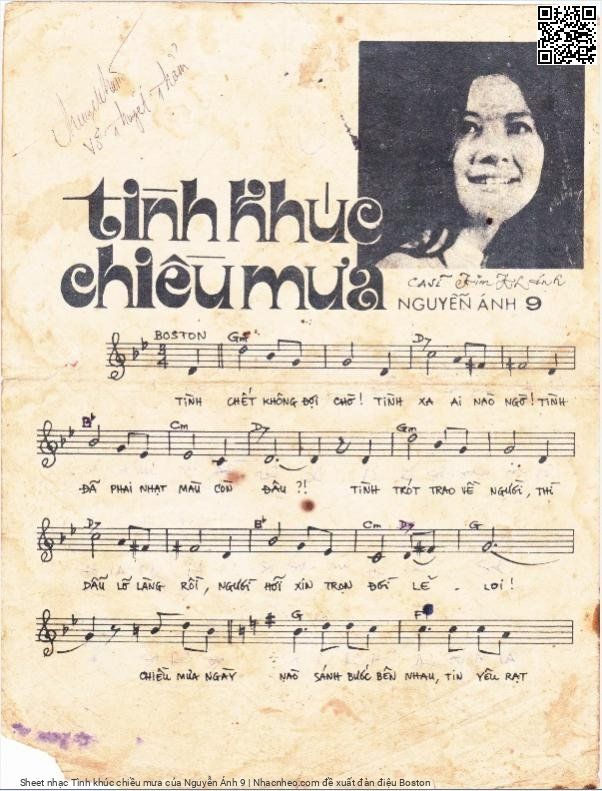 tình khúc
chiều mưa
CASĨ Kim Kh Ánh
NGUYỄN ÁNH 9
BOSTON Gm D7
3
4
TÌNH CHẾT KHÔNG ĐỢI CHỜ! TÌNH XA AI NÀO NGỜ! TÌNH
B♭ Cm D7 Gm
ĐÃ PHAI NHẠT MÀU CÒN ĐÂU?! TÌNH TRÓT TRAO VỀ NGƯỜI, THÌ
D7 B♭ Cm D7 G
DẪU LỠ LÀNG RỒI, NGƯỜI HỠI XIN TRỌN ĐỜI LẺ - LOI!
G F
CHIỀU MƯA NGÀY NÀO SÁNH BƯỚC BÊN NHAU, TIN YÊU RẠT
Sheet nhạc Tình khúc chiều mưa của Nguyễn Ánh 9 | Nhacnheo.com đề xuất đàn điệu Boston